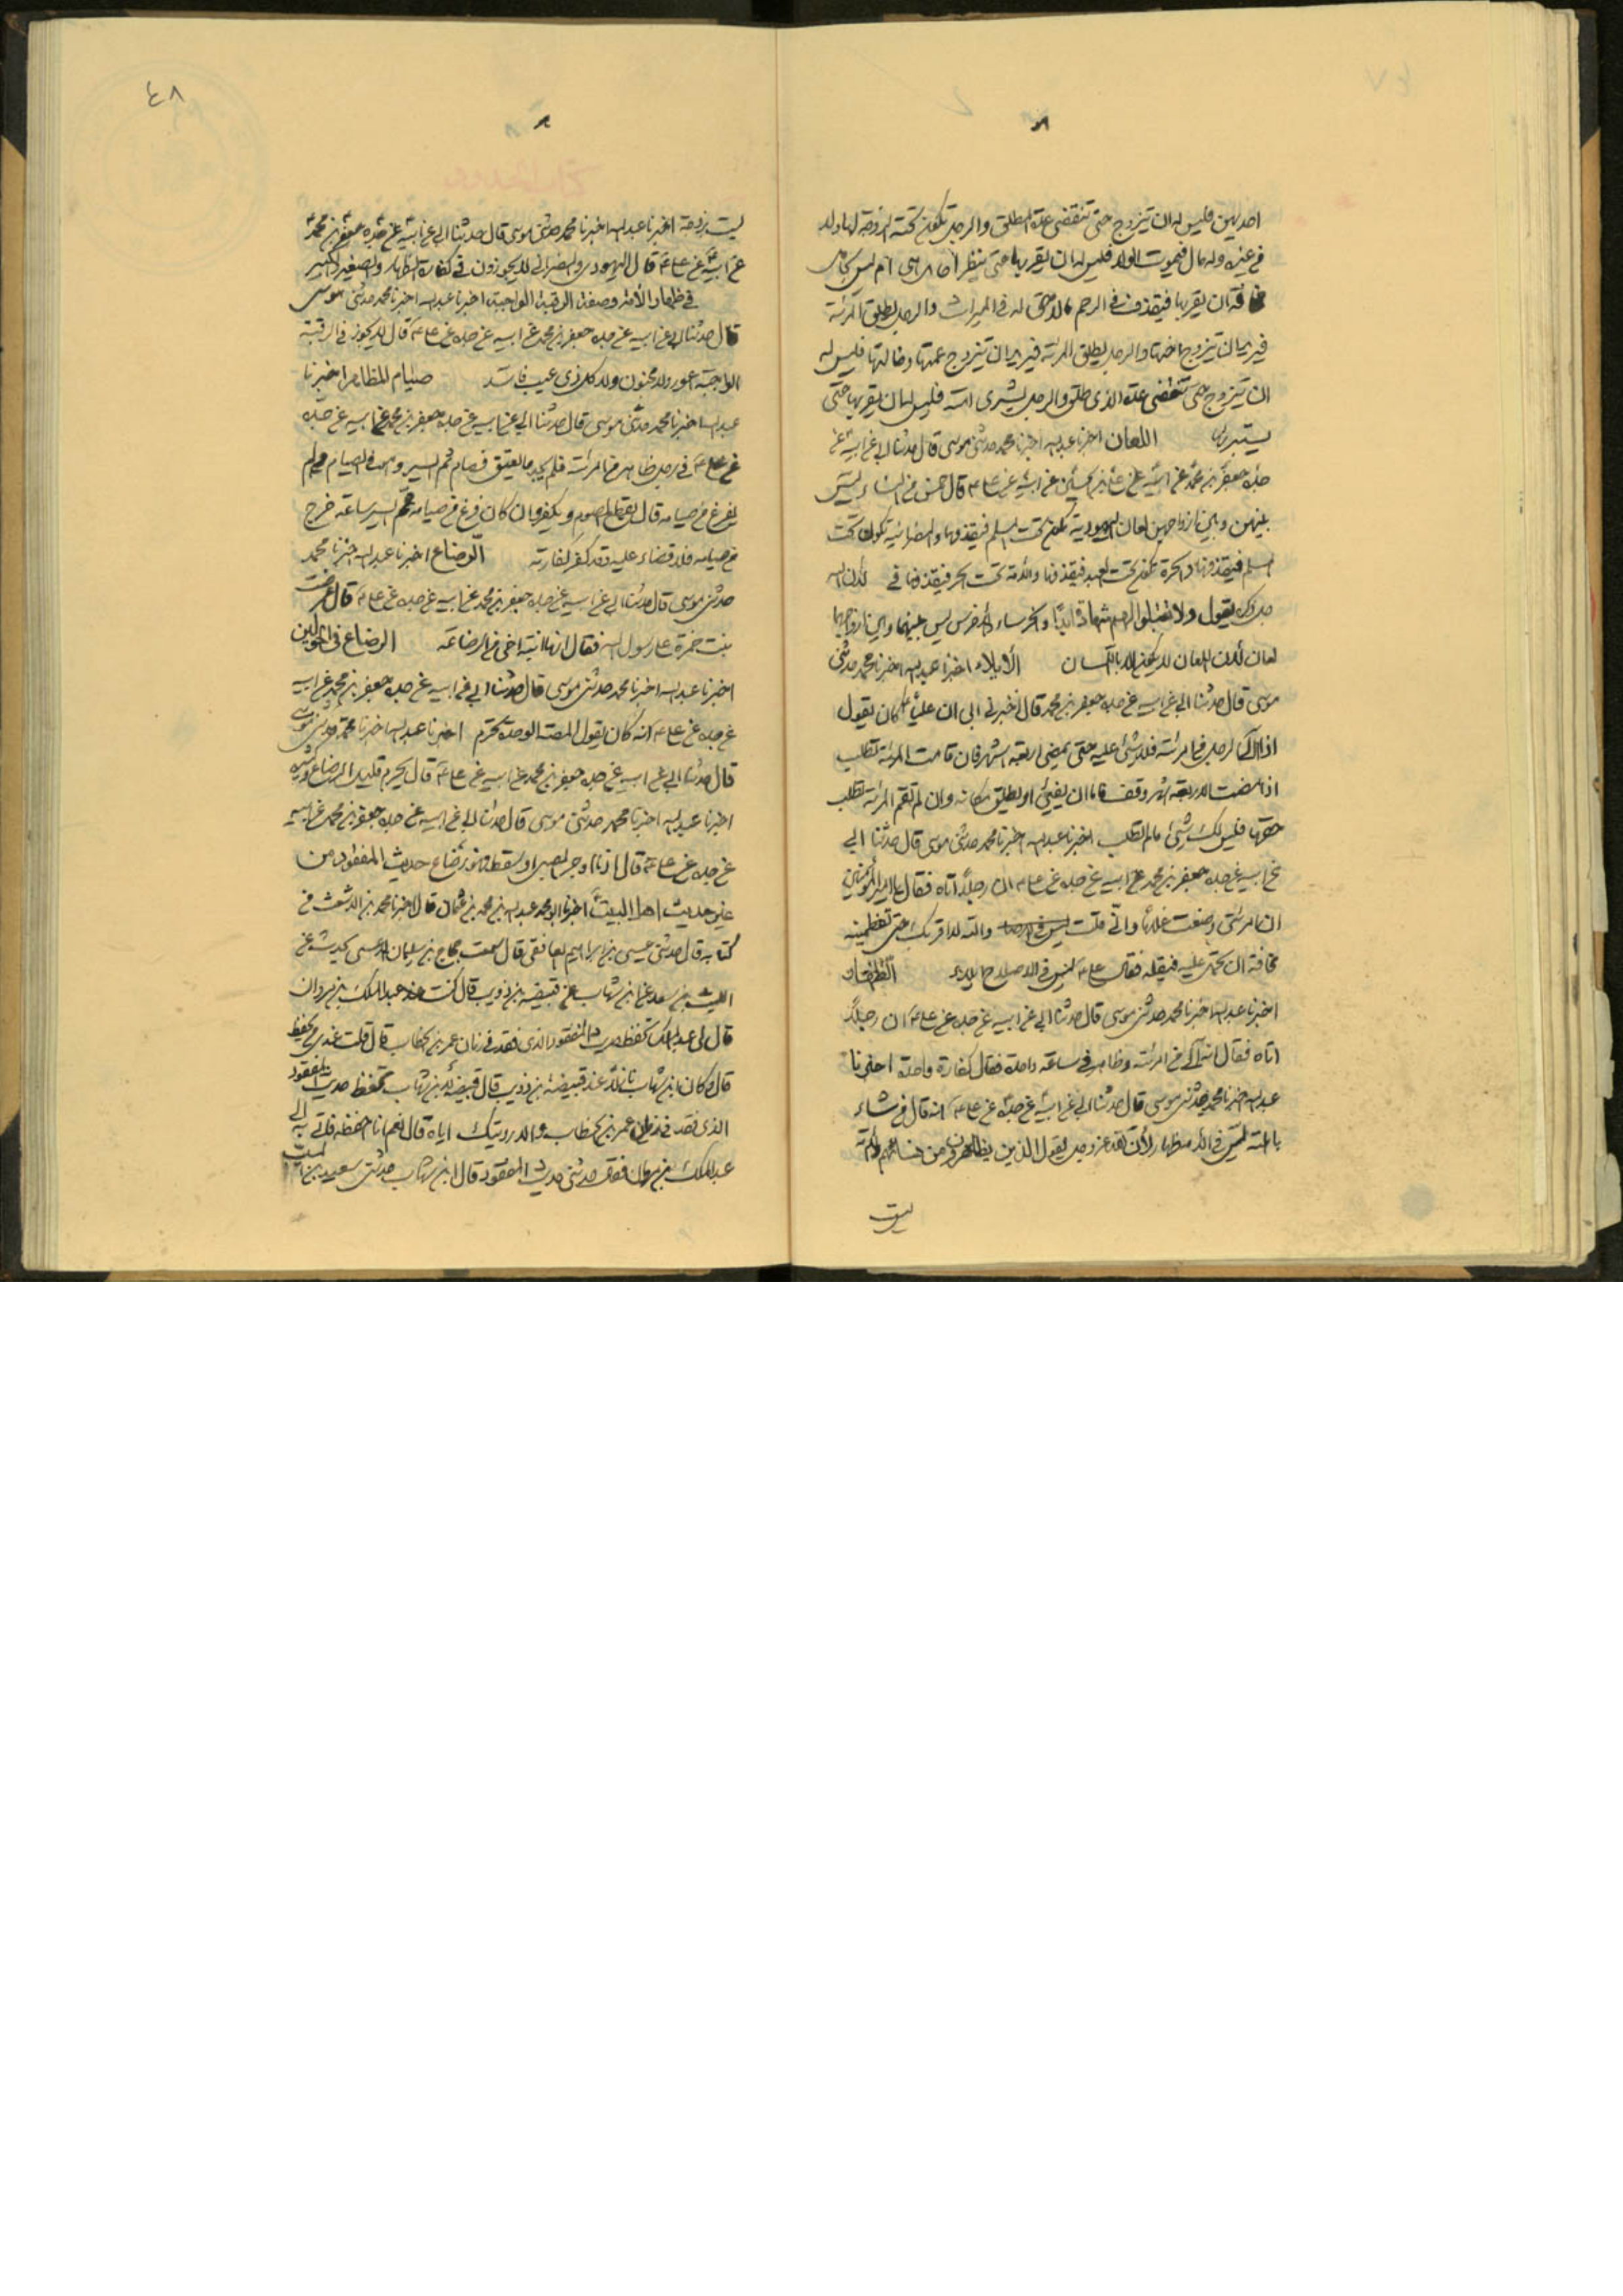 احديهن فليس له ان يتزوج حتى تنقضى عدة المطلق والرجل تكون تحته الزوجة لها ولد
من غيره وله مال فيموت الولد فليس له ان يقربها حتى ينظر احامل هى ام ليس بحامل
مخافة ان يقربها فيقذف فى الرحم مالا حق له فى الميراث والرجل يطلق المرئة
فيريد ان يتزوج اختها والرجل يطلق المرئة فيريد ان يتزوج عمتها وخالتها فليس له
ان يتزوج حتى تنقضى عدة الذى طلق والرجل يشترى امة فليس له ان يقربها حتى
يستبرئ اللعان اخبرنا عبد الله اخبرنا محمد حدثنى موسى قال حدثنا ابى عن ابيه عن
جده جعفر بن محمد عن ابيه عن على بن الحسين عن ابيه عن على ع قال خمس من النساء ليس
بينهن وبين ازواجهن لعان اليهودية تكون تحت المسلم فيقذفها والنصرانية تكون تحت
المسلم فيقذفها والحرة تكون تحت العبد فيقذفها والامة تحت الحر فيقذفها لان الله
يقول ولا تقبلوا لهم شهادة ابدا والخرساء والاخرس ليس بينهما وبين ازواجهما
لعان لان اللعان لا يكون الا باللسان الايلاء اخبرنا عبد الله اخبرنا محمد حدثنى
موسى قال حدثنا ابى عن ابيه عن جده جعفر بن محمد قال اخبرنى ابى ان عليا ع كان يقول
اذا الى الرجل من امرئته فلا شئ عليه حتى يمضى اربعة اشهر فان قامت المرئة تطلب
اذا مضت الاربعة اشهر وقف فاما ان يفئ او يطلق مكانه وان لم تقم المرئة تطلب
حقها فليس لك شئ ما لم تطلب اخبرنا عبد الله اخبرنا محمد حدثنى موسى قال حدثنا ابى
عن ابيه عن جده جعفر بن محمد عن ابيه عن جده عن على ع ان رجلا اتاه فقال يا امير المؤمنين
ان امرئتى وضعت غلاما وانى قلت والله لا اقربك حتى تفطمينه
مخافة ان تحمل عليه فيقتله فقال على ع ليس فى الاصلاح ايلاء الظهار
اخبرنا عبد الله اخبرنا محمد حدثنى موسى قال حدثنا ابى عن ابيه عن جده عن على ع ان رجلا
اتاه فقال انه آلى من امرئته وظاهر فى ساعة واحدة فقال كفارة واحدة اخبرنا
عبد الله اخبرنا محمد حدثنى موسى قال حدثنا ابى عن ابيه عن جده عن على ع انه قال من شاء
باهلته ليس فى الامة ظهار لان الله عز وجل يقول الذين يظاهرون من نسائهم والامة
ليست
٤٨
ليست بزوجة اخبرنا عبد الله اخبرنا محمد حدثنى موسى قال حدثنا ابى عن ابيه عن جده جعفر بن محمد
عن ابيه عن على ع قال اليهودى والنصرانى لا يجوزون فى كفارة الظهار والصغير والكبير
فى ظهار الامة وصفة الرقبة الواجبة اخبرنا عبد الله اخبرنا محمد حدثنى موسى
قال حدثنا ابى عن ابيه عن جده جعفر بن محمد عن ابيه عن جده عن على ع قال لا يجوز فى الرقبة
الواجبة اعور ولا مجنون ولا كل ذى عيب فاسد صيام المظاهر اخبرنا
عبد الله اخبرنا محمد حدثنى موسى قال حدثنا ابى عن ابيه عن جده جعفر بن محمد عن ابيه عن جده
عن على ع فى رجل ظاهر من امرئته فلم يجد ما يعتق فصام ثم ايسر وهو فى الصيام ولم
يفرغ من صيامه قال يقطع الصوم ويكفر وان كان فرغ من صيامه ثم ايسر ساعة خرج
من صيامه فلا قضاء عليه وقد كفر كفارته الرضاع اخبرنا عبد الله اخبرنا محمد
حدثنى موسى قال حدثنا ابى عن ابيه عن جده جعفر بن محمد عن ابيه عن جده عن على ع قال عرضت
بنت حمزة على رسول الله فقال انها ابنة اخى من الرضاعة الرضاع فى الحولين
اخبرنا عبد الله اخبرنا محمد حدثنى موسى قال حدثنا ابى عن ابيه عن جده جعفر بن محمد عن ابيه
عن جده عن على ع انه كان يقول المصة الواحدة تحرم اخبرنا عبد الله اخبرنا محمد حدثنى موسى
قال حدثنا ابى عن ابيه عن جده جعفر بن محمد عن ابيه عن على ع قال يحرم قليل الرضاع وكثيره
اخبرنا عبد الله اخبرنا محمد حدثنى موسى قال حدثنا ابى عن ابيه عن جده جعفر بن محمد عن ابيه
عن جده عن على ع قال اذا اوجر الصبى او سقط فهو رضاع حديث المفقود من
غير حديث اهل البيت اخبرنا ابو محمد عبد الله بن محمد بن عثمان قال اخبرنا محمد بن الاشعث فى
كتابه قال حدثنى عيسى بن ابراهيم الغافقى قال سمعت حجاج بن سليمان الرعينى يحدث عن
الليث بن سعد عن ابن شهاب عن قبيضة بن ذويب قال كنت عند عبد الملك بن مروان
قال لى عبد الملك تحفظ حديث المفقود الذى فقد فى زمان عمر بن الخطاب قال قلت عندى من يحفظ
قال وكان ابن شهاب نازلا عند قبيضة بن ذويب قال قبيضة لابن شهاب تحفظ حديث المفقود
الذى فقد فى زمان عمر بن الخطاب اياه قال نعم انا احفظه فاتى به الى
عبد الملك بن مروان فقال حدثنى حديث المفقود قال ابن شهاب حدثنى سعيد بن المسيب